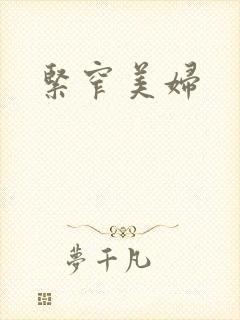 緊窄美婦
夢千凡